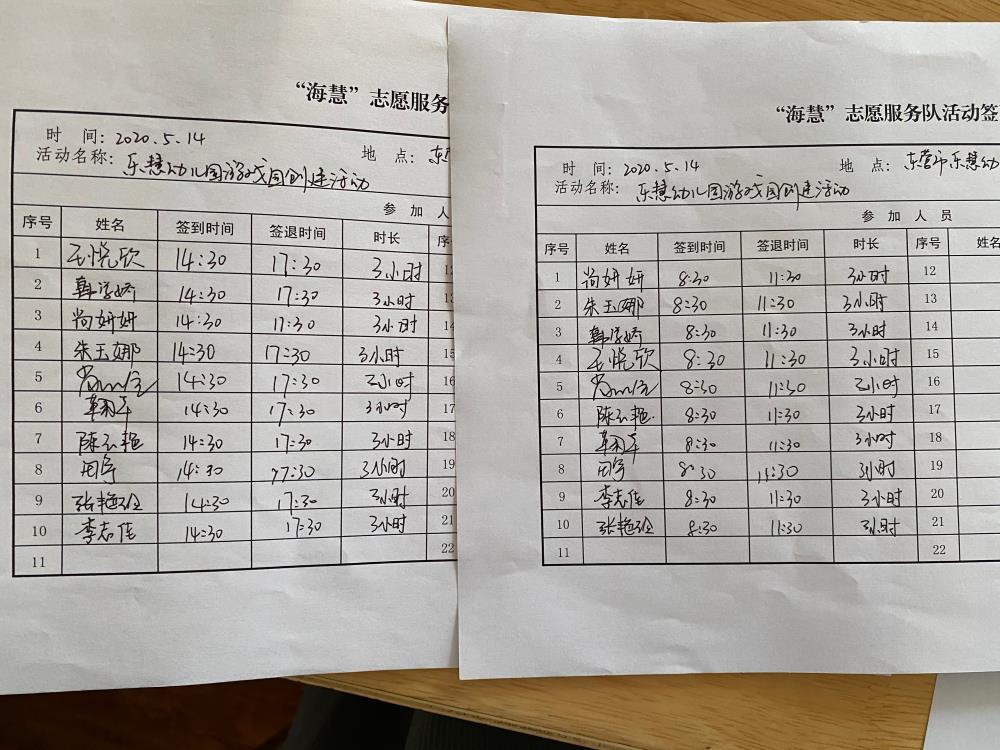 “海慧”志愿服务
时 间：2020.5.14 地 点：东
活动名称：乐慧幼儿园游戏园创建活动
参 加 人
序号 姓名 签到时间 签退时间 时长 序
1 王悦欣 14:30 17:30 3小时 12
2 韩学娇 14:30 17:30 3小时 13
3 尚妍妍 14:30 17:30 3小时 14
4 朱玉娜 14:30 17:30 3小时 15
5 14:30 17:30 3小时 16
6 14:30 17:30 3小时 17
7 陈云艳 14:30 17:30 3小时 18
8 田宇 14:30 17:30 3小时 19
9 张艳玲 14:30 17:30 3小时 20
10 李志佳 14:30 17:30 3小时 21
11 22
“海慧”志愿服务队活动签
时 间：2020.5.14 地 点：东营市乐慧幼
活动名称：乐慧幼儿园游戏园创建活动
参 加 人 员
序号 姓名 签到时间 签退时间 时长 序号 姓名
1 尚妍妍 8:30 11:30 3小时 12
2 朱玉娜 8:30 11:30 3小时 13
3 韩学娇 8:30 11:30 3小时 14
4 王悦欣 8:30 11:30 3小时 15
5 8:30 11:30 3小时 16
6 陈云艳 8:30 11:30 3小时 17
7 8:30 11:30 3小时 18
8 田宇 8:30 11:30 3小时 19
9 李志佳 8:30 11:30 3小时 20
10 张艳玲 8:30 11:30 3小时 21
11 22